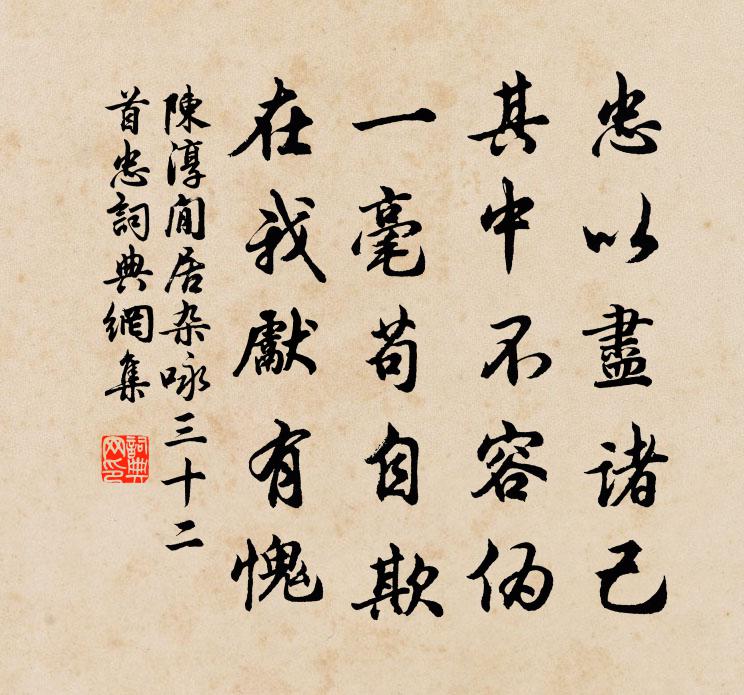 忠以盡諸己
其中不容偽
一毫苟自欺
在我獻有愧
陳淳閒居杂咏三十二
首忠詞典網集
詞典
网印